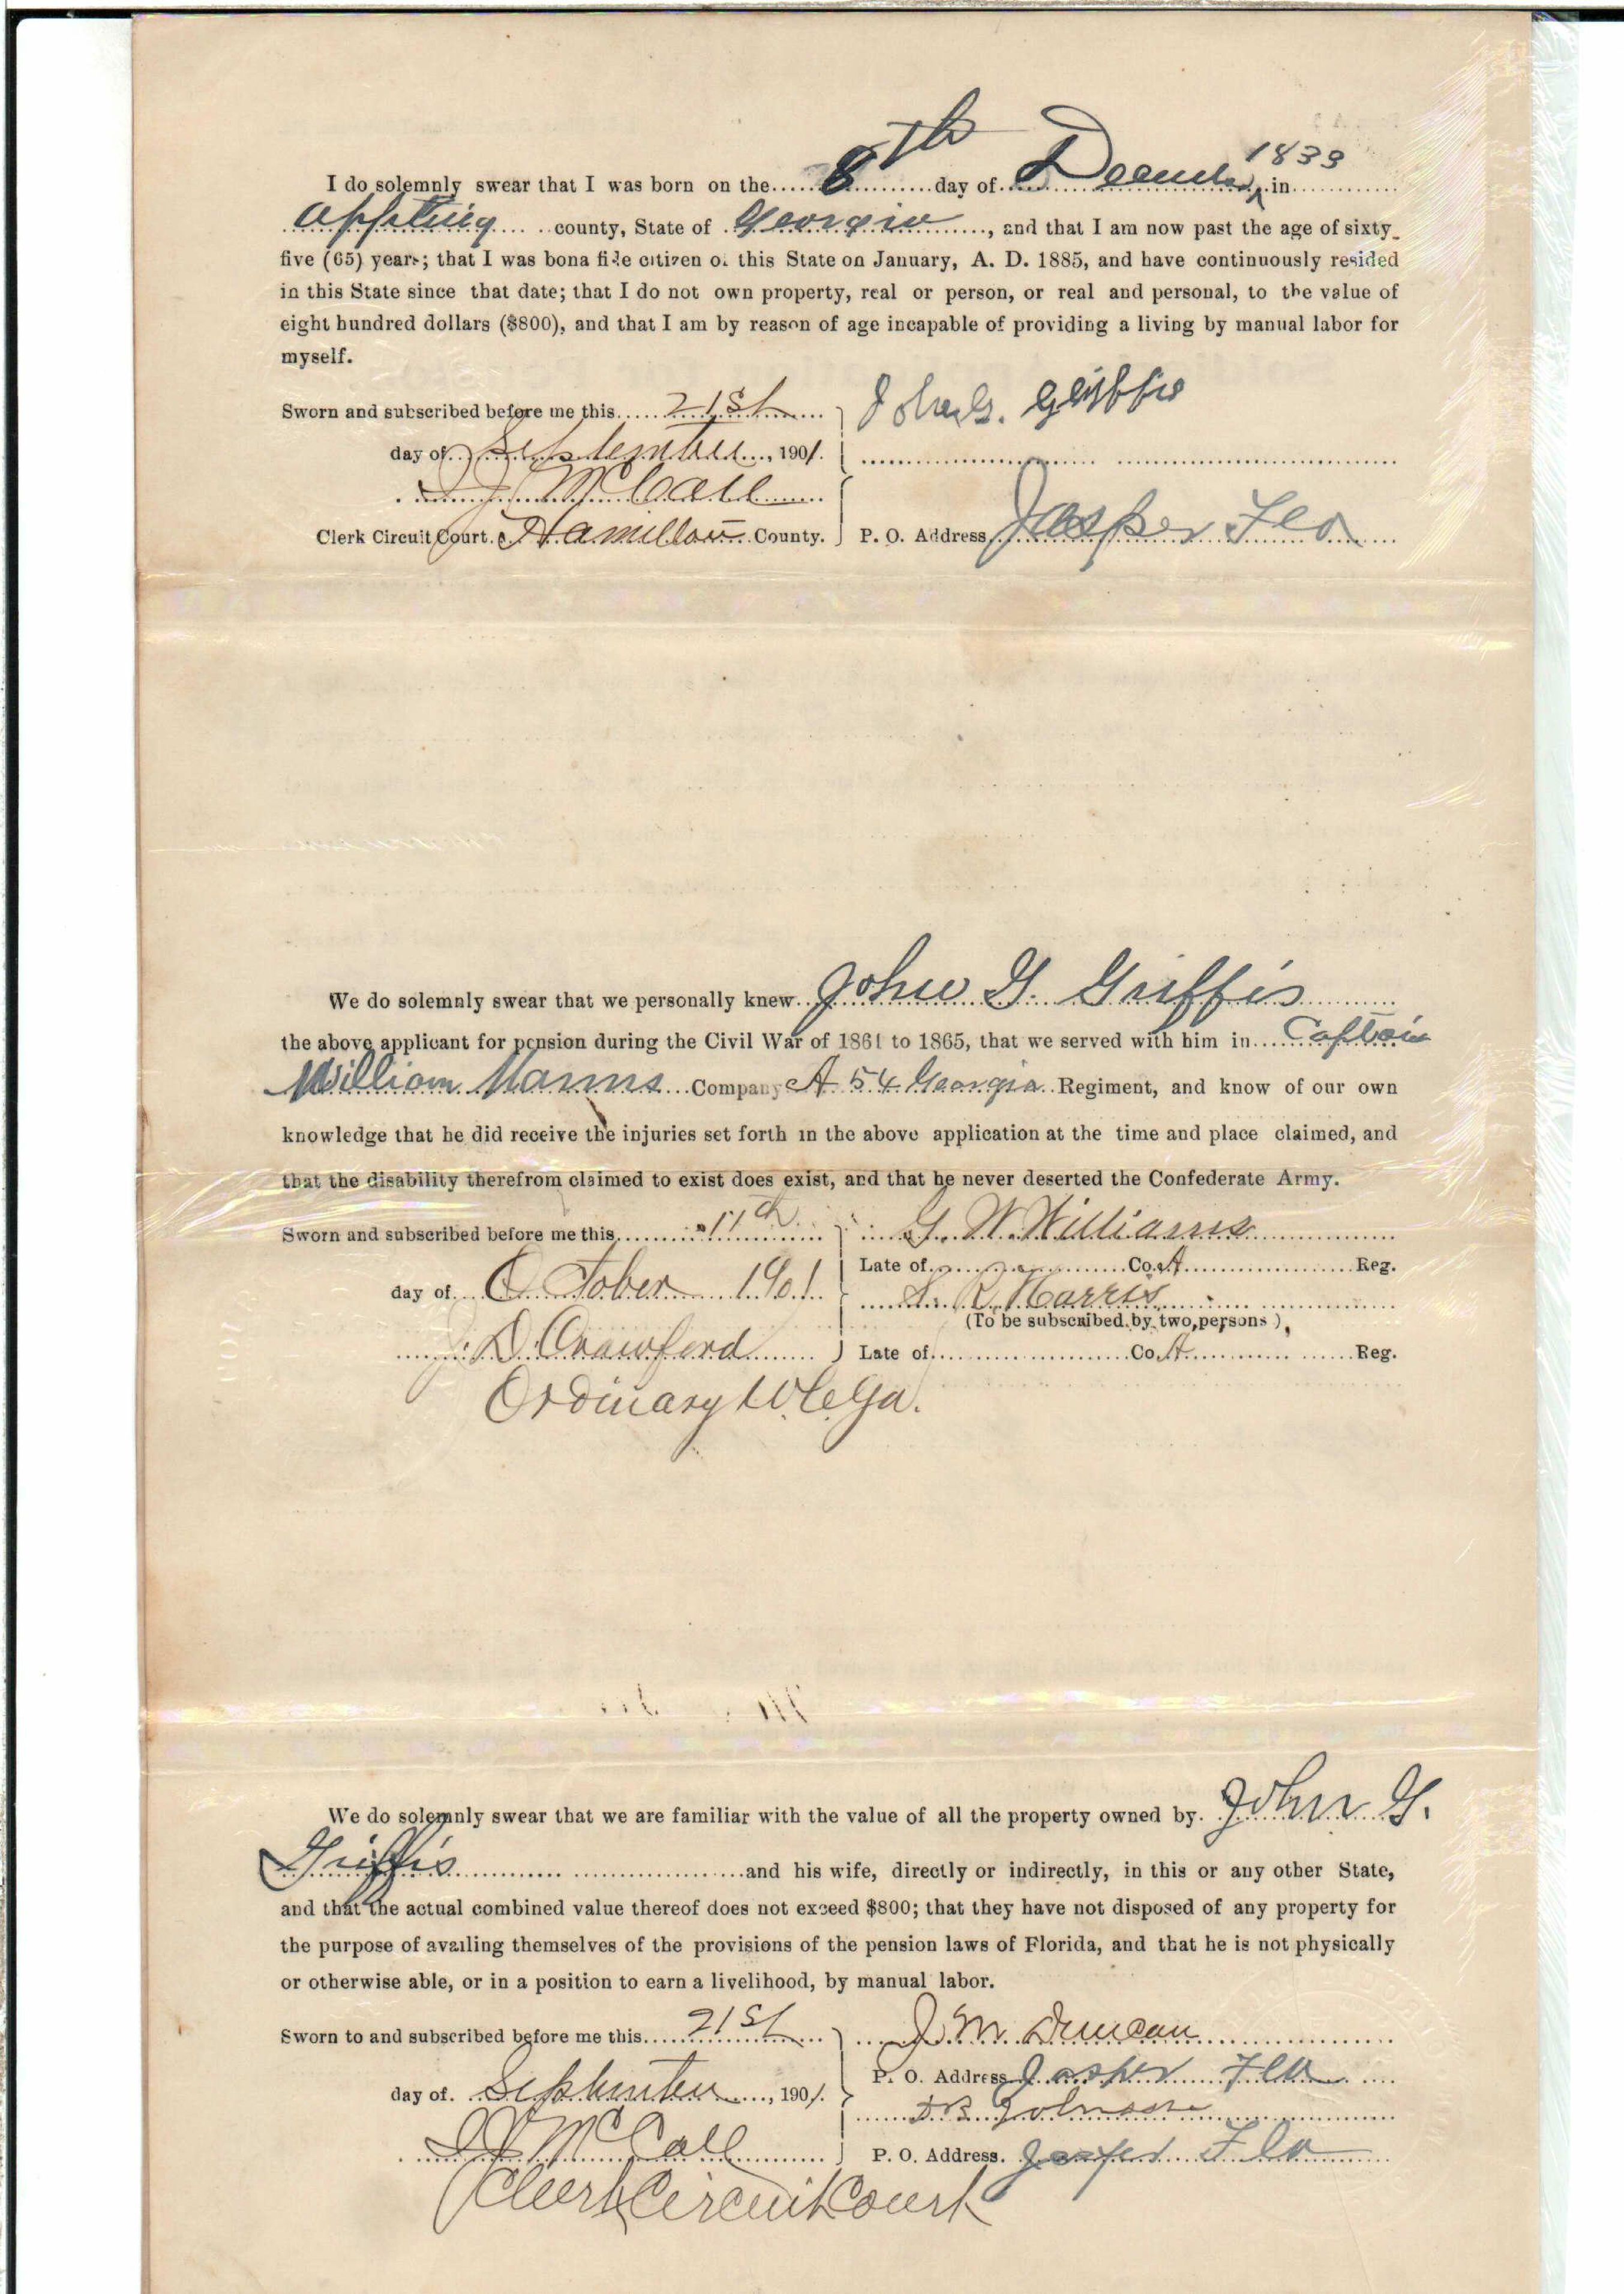 8th December 1839
I do solemnly swear that I was born on the 8th day of December, in
Appling county, State of Georgia, and that I am now past the age of sixty-
five (65) years; that I was bona fide citizen of this State on January, A. D. 1885, and have continuously resided
in this State since that date; that I do not own property, real or person, or real and personal, to the value of
eight hundred dollars ($800), and that I am by reason of age incapable of providing a living by manual labor for
myself.
Sworn and subscribed before me this 21st John G. Griffis
day of September, 1901.
J J McCall
Clerk Circuit Court. Hamilton County. P. O. Address, Jasper Fla
We do solemnly swear that we personally knew John G. Griffis
the above applicant for pension during the Civil War of 1861 to 1865, that we served with him in Captain
William Company A 54 Georgia Regiment, and know of our own
knowledge that he did receive the injuries set forth in the above application at the time and place claimed, and
that the disability therefrom claimed to exist does exist, and that he never deserted the Confederate Army.
Sworn and subscribed before me this 11th G. W. Williams
Late of Co. A Reg.
day of October 1901 R. Harris
(To be subscribed by two persons),
D Crawford Late of Co. A Reg.
Ordinary W. C. Ga.
We do solemnly swear that we are familiar with the value of all the property owned by John G.
Griffis and his wife, directly or indirectly, in this or any other State,
and that the actual combined value thereof does not exceed $800; that they have not disposed of any property for
the purpose of availing themselves of the provisions of the pension laws of Florida, and that he is not physically
or otherwise able, or in a position to earn a livelihood, by manual labor.
Sworn to and subscribed before me this 21st J. M. Duncan
P. O. Address Jasper Fla
day of September, 1901. Johnson
J J McCall P. O. Address. Jasper Fla
Clerk Circuit Court